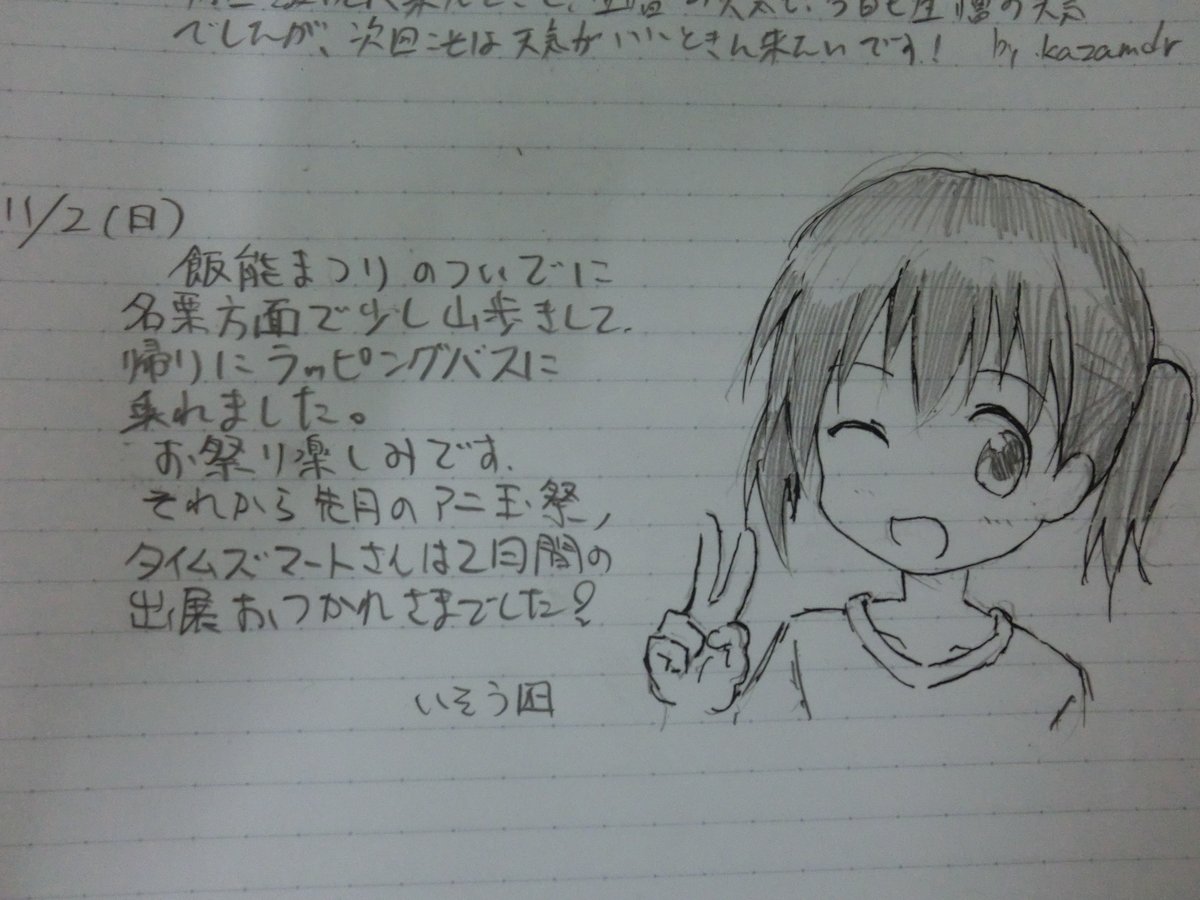 でしたが、次回こそは天気がいいときに来たいです! by kazamdr
11/2(日)
飯能まつりのついでに
名栗方面で少し山歩きして、
帰りにラッピングバスに
乗れました。
お祭り楽しみです。
それから先月のアニ玉祭、
タイムズマートさんは2日間の
出展おつかれさまでした?
いそう